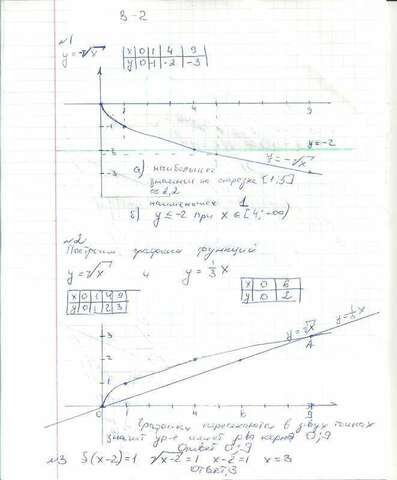 В-2
№1
y=-√x
x 0 1 4 9
y 0 -1 -2 -3
1 4 9
-2
-3
y=-2
y=-√x
а) наибольшее
значение на отрезке [1;5]
≈2,2
наименьшее 1
б) y≤-2 при x∈[4;+∞)
№2
Построим графики функций
y=√x и y=1/3 x
x 0 1 4 9
y 0 1 2 3
x 0 6
y 0 2
3
2
1
0 1 4 6 9
y=√x
y=1/3 x
A
Графики пересекаются в двух точках
значит ур-е имеет два корня 0;9
Ответ 0;9
№3 5(x-2)=1 √x-2=1 x-2=1 x=3
Ответ,3